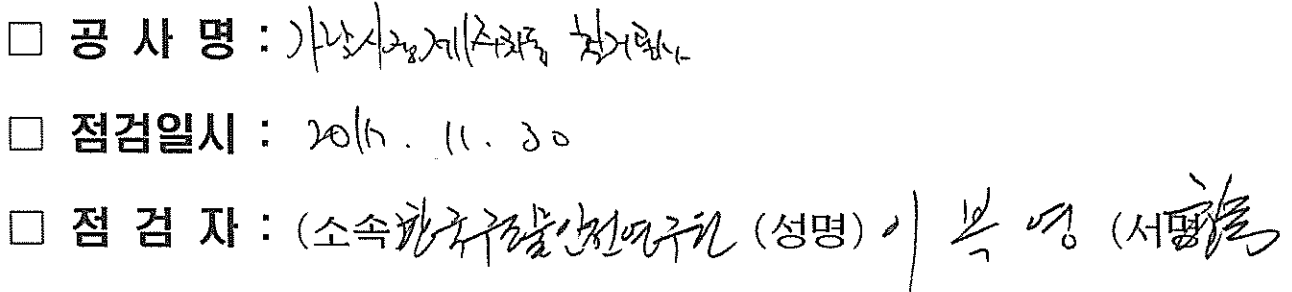 □ 공 사 명 : 가남시장제1주차동 철거공사
□ 점검일시 : 2017. 11. 30
□ 점 검 자 : (소속 한국구조물안전연구원 (성명) 이 복 영 (서명)